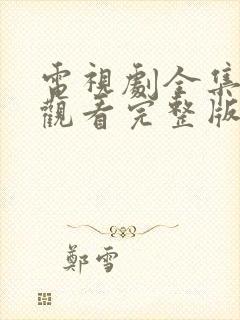 電視劇全集
觀看完整版
鄭雪